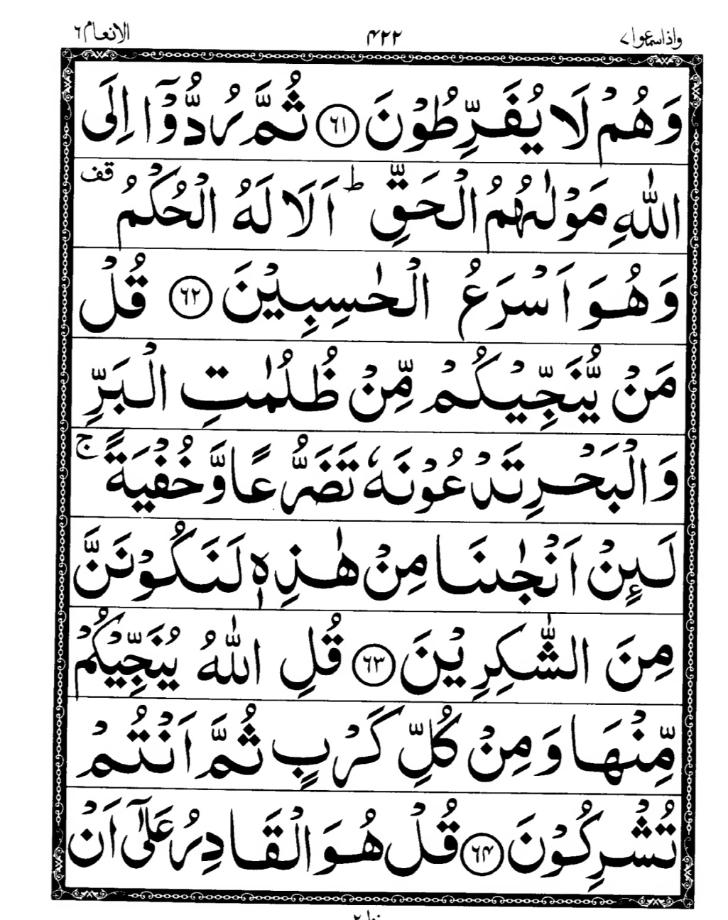 واذاسمعوا۷ ۴۲۲ الانعام۶
وَهُمْ لَا يُفَرِّطُوْنَ ۝۶۱ ثُمَّ رُدُّوْۤا اِلَى
اللّٰهِ مَوْلٰىهُمُ الْحَقِّ ؕ اَلَا لَهُ الْحُكْمُ قف
وَهُوَ اَسْرَعُ الْحٰسِبِيْنَ ۝۶۲ قُلْ
مَنْ يُّنَجِّيْكُمْ مِّنْ ظُلُمٰتِ الْبَرِّ
وَالْبَحْرِ تَدْعُوْنَهٗ تَضَرُّعًا وَّخُفْيَةً ۚ
لَىِٕنْ اَنْجٰىنَا مِنْ هٰذِهٖ لَنَكُوْنَنَّ
مِنَ الشّٰكِرِيْنَ ۝۶۳ قُلِ اللّٰهُ يُنَجِّيْكُمْ
مِّنْهَا وَمِنْ كُلِّ كَرْبٍ ثُمَّ اَنْتُمْ
تُشْرِكُوْنَ ۝۶۴ قُلْ هُوَ الْقَادِرُ عَلٰۤى اَنْ